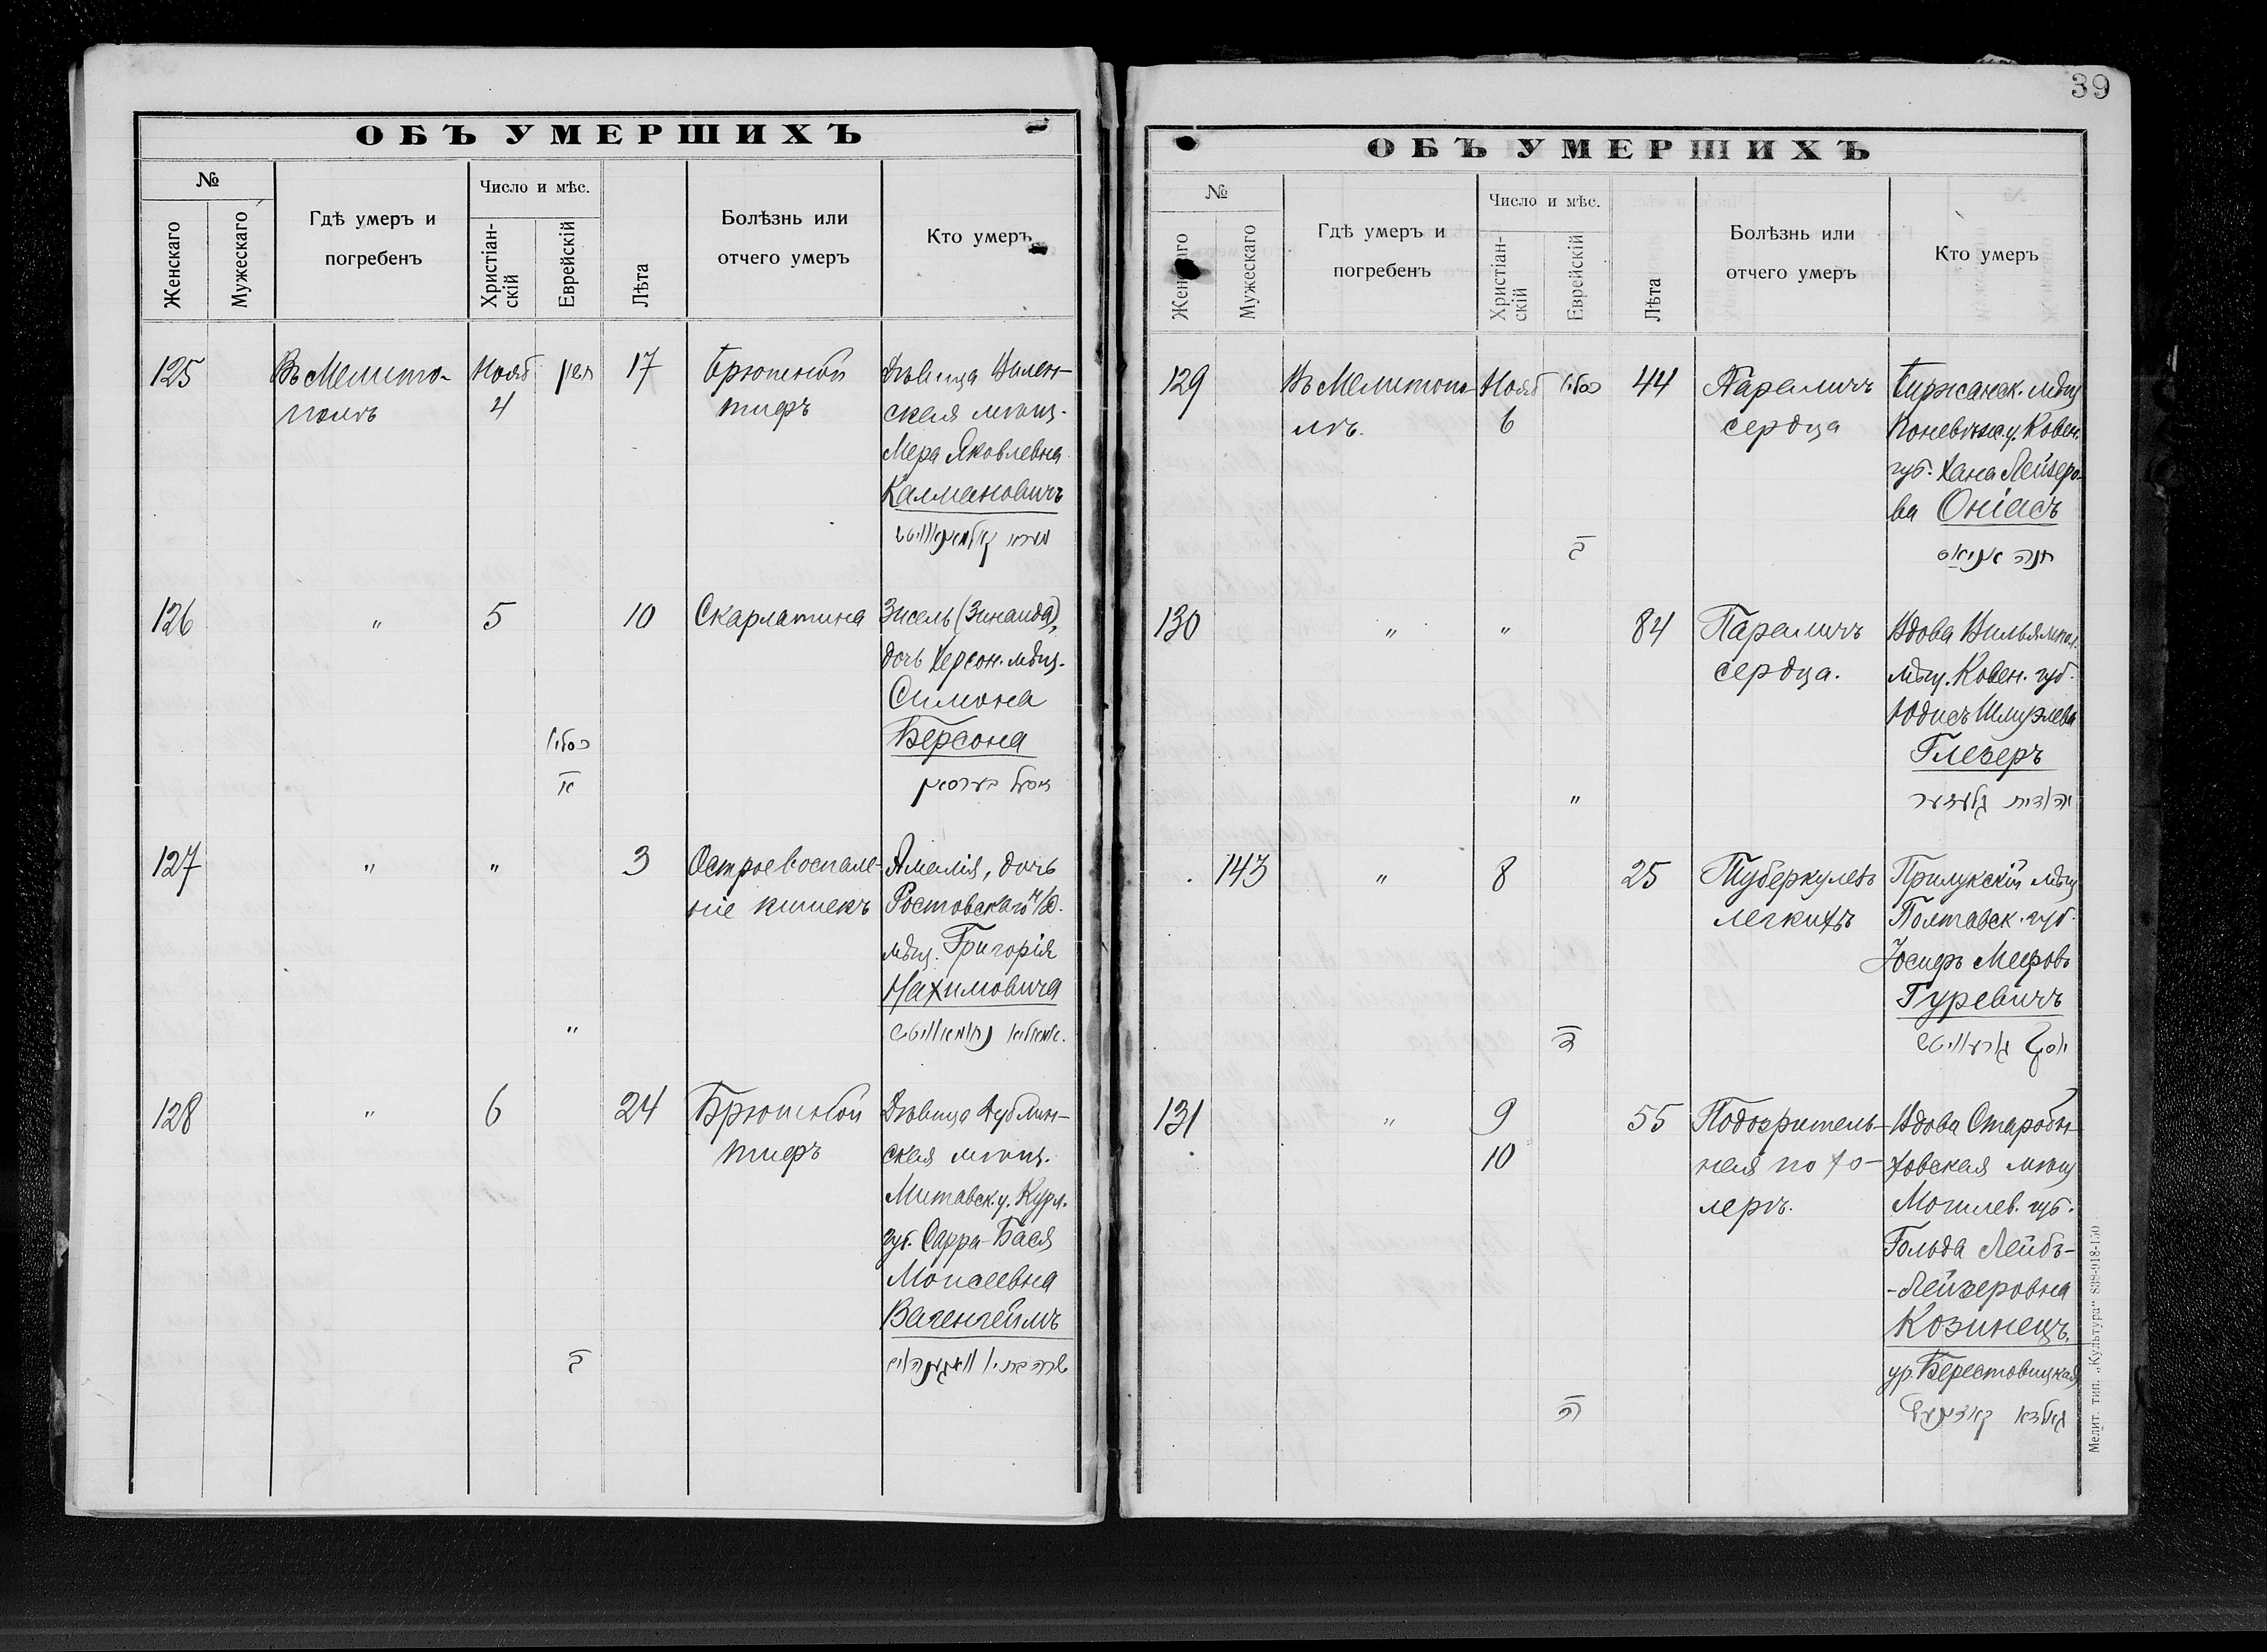 ОБЪ УМЕРШИХЪ
№
Женскаго
Мужескаго
Гдѣ умеръ и
погребенъ
Число и мѣс.
Христіан-
скій
Еврейскій
Лѣта
Болѣзнь или
отчего умеръ
Кто умеръ
125
Въ Мелито-
полѣ
Нояб
4
ря
17
Брюшной
тифъ
Дѣвица Вилен-
ская мѣщ.
Мера Яковлевна
Калмановичъ
126
"
5
10
Скарлатина
Зисель (Зинаида),
дочь Херсон. мѣщ.
Симона
Берсона
כסלו
א
זיסל בערסאן
127
"
"
3
Острое воспале-
ніе кишекъ
Амалія, дочь
Ростовскаго н/Д.
мѣщ. Григорія
Нахимовича
"
128
"
6
24
Брюшной
тифъ
Дѣвица
ская мѣщ.
Митавск. у. Курл.
губ. Сарра-Бася
Моисеевна
Вагенгеймъ
ב
39
ОБЪ УМЕРШИХЪ
№
Женскаго
Мужескаго
Гдѣ умеръ и
погребенъ
Число и мѣс.
Христіан-
скій
Еврейскій
Лѣта
Болѣзнь или
отчего умеръ
Кто умеръ
129
Въ Мелитопо-
лѣ.
Нояб
6
כסלו
44
Параличъ
сердца
Биржанск. мѣщ
Поневѣж. у. Ковен.
губ. Хана Лейзеро-
ва Оніасъ
ב
חנה אניאס
130
"
"
84
Параличъ
сердца.
Вдова Вильямпол.
мѣщ. Ковен. губ.
Юдисъ Шмуэлева
Глезеръ
"
יהודית גלעזער
143
"
8
25
Туберкулезъ
легкихъ
Прилукскій мѣщ
Полтавск. губ.
Іосифъ Мееровъ
Гуревичъ
ד
יוסף גורעוויטש
131
"
9
10
55
Подозритель-
ная по хо-
лерѣ.
Вдова Старобы-
ховская мѣщ
Могилев. губ.
Гольда Лейбъ-
-Лейзеровна
Козинецъ,
ур. Берестовицкая
ה
גאלדא קאזינעץ
Мелит. тип. „Культура" 838-918-150